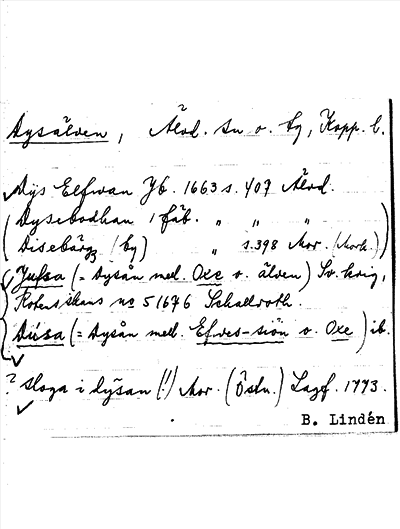 Dysälven, Älvd. sn o. tg, Kopp. l.
Dÿs Elfwan Jb. 1663 s. 407 Älvd.
(Dysebodhan / fäb. " " "
(Disebärg / by) " s. 398 Mor. (Mork.))
Jufsa (= Dysån mel. Oxe o. älven) Sv. krig,
no 5 1676 Schallroth.
Dúsa (= Dysån mell. Efwes-siön o. Oxe) ib.
? sloga i dÿsan (!) Mor. (Östn.) Lagf. 1773.
B. Lindén